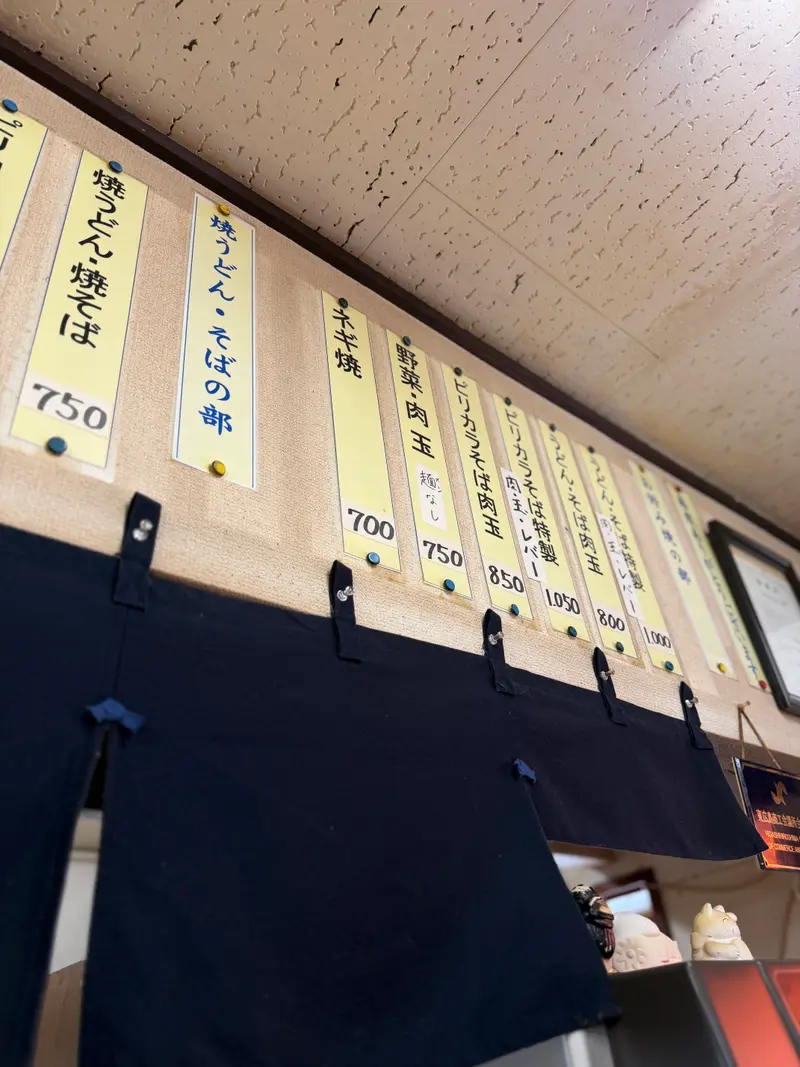 お好み焼の部
うどん・そば特製
肉・玉・レバー
1.000
うどん・そば肉玉
800
ピリカラそば特製
肉・玉・レバー
1.050
ピリカラそば肉玉
850
野菜・肉玉
麺なし
750
ネギ焼
700
焼うどん・そばの部
焼うどん・焼そば
750
ピリ
東広島商工会議所会
HIGASHIHIROSHIMA
OF COMMERCE AN